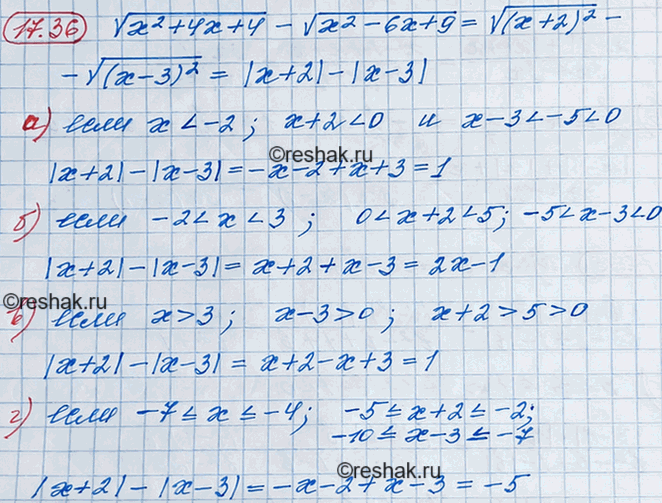 17.36 √x²+4x+4 - √x²-6x+9 = √(x+2)² -
- √(x-3)² = |x+2| - |x-3|
а) если x < -2; x+2 < 0 и x-3 < -5 < 0
©reshak.ru
|x+2| - |x-3| = -x-2+x+3 = 1
б) если -2 < x < 3; 0 < x+2 < 5; -5 < x-3 < 0
|x+2| - |x-3| = x+2+x-3 = 2x-1
©reshak.ru
в) если x > 3; x-3 > 0; x+2 > 5 > 0
|x+2| - |x-3| = x+2-x+3 = 1
г) если -7 ≤ x ≤ -4; -5 ≤ x+2 ≤ -2;
-10 ≤ x-3 ≤ -7
©reshak.ru
|x+2| - |x-3| = -x-2+x-3 = -5